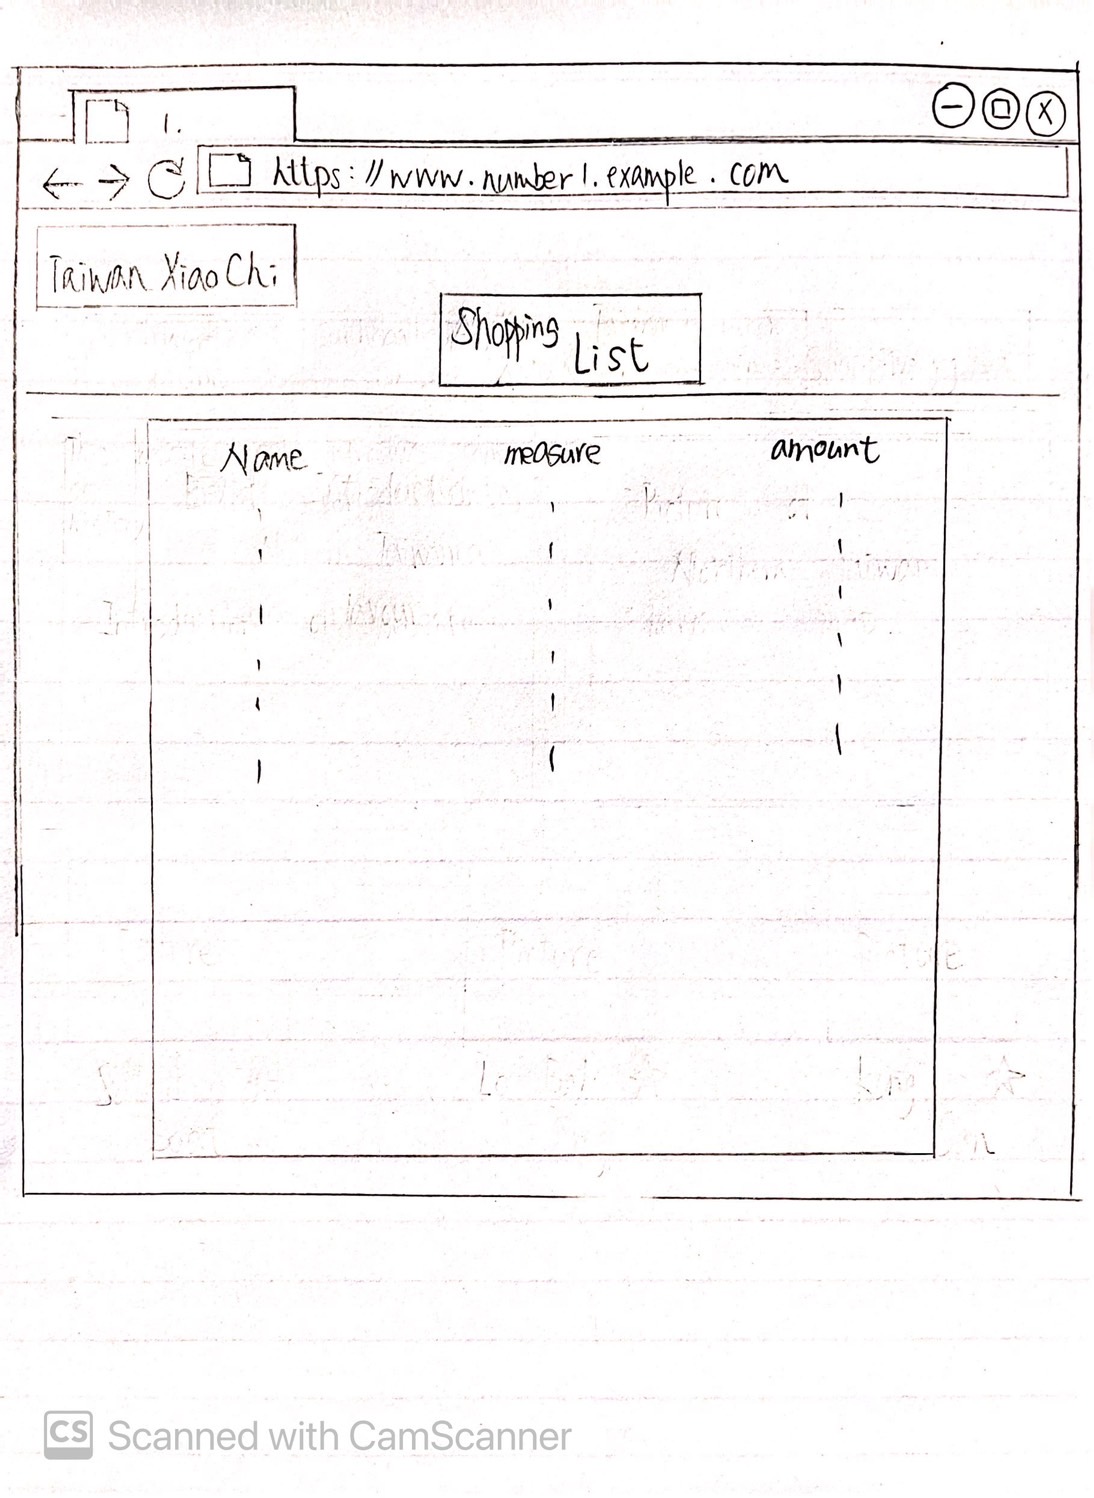 1.
https://www.number1.example.com
Taiwan XiaoChi
Shopping
List
Name measure amount
CS Scanned with CamScanner